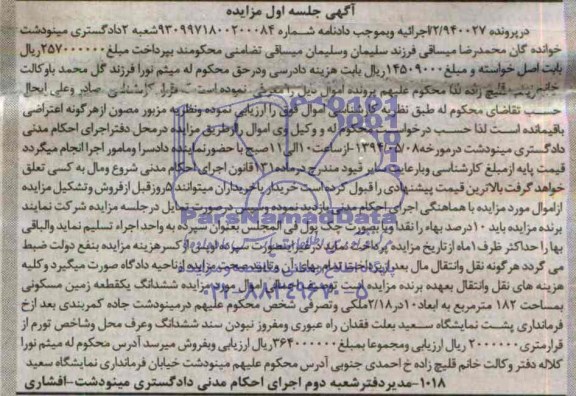 آگهی جلسه اول مزایده
درپرونده ۲/۹۴۰۰۲۷/اجرائیه وبموجب دادنامه شماره ۹۳۰۹۹۷۱۸۰۰۲۰۰۰۸۴شعبه ۲دادگستری مینودشت
خوانده گان محمدرضا میساقی فرزند سلیمان وسلیمان میساقی تضامنی محکومند بپرداخت مبلغ۲۵۷۰۰۰۰۰۰ریال
بابت اصل خواسته و مبلغ۱۴۵۰۹۰۰۰ریال بابت هزینه دادرسی ودرحق محکوم له میثم نورا فرزند گل محمد باوکالت
خانم زینب قلیچ زاده لذا محکوم علیهم پرونده اموال ذیل را معرفی نموده است صادر وعلی ایحال
حسب تقاضای محکوم له طبق نظریه کارشناسی اموال فوق را ارزیابی نموده ونظریه مزبور مصون ازهرگونه اعتراضی
باقیمانده است لذا حسب درخواست محکوم له و وکیل وی اموال را ازطریق مزایده درمحل دفتراجرای احکام مدنی
دادگستری مینودشت درمورخه ۱۳۹۴/۰۵/۰۸ ازساعت۱۰الی۱۱صبح باحضورنماینده دادسرا ومامور اجرا انجام میگردد
قیمت پایه ازمبلغ کارشناسی وبارعایت سایر قیود مندرج درماده۱۳۱قانون اجرای احکام مدنی شروع ومال به کسی تعلق
خواهد گرفت بالاترین قیمت پیشنهادی را قبول کرده است خریدار یاخریداران میتوانند ۵روزقبل ازفروش وتشکیل مزایده
ازاموال مورد مزایده با هماهنگی اجرای احکام مدنی بازدید نموده وسپس درصورت تمایل درجلسه مزایده شرکت نمایند
برنده مزایده باید ۱۰درصد بهاء را نقدا ویا بصورت چک پول فی المجلس بعنوان سپرده به واحد اجراء تسلیم نماید والباقی
بها را حداکثر ظرف ۱ماه ازتاریخ مزایده پرداخت نماید درغیر اینصورت سپرده پس از کسرهزینه مزایده بنفع دولت ضبط
می گردد هرگونه نقل وانتقال مال بعد از پرداخت تمام بهای آن و تایید صحت مزایده ازناحیه دادگاه صورت میگیرد وکلیه
هزینه های نقل وانتقال بعهده برنده مزایده است توصیف اجمالی اموال مورد مزایده ششدانگ یکقطعه زمین مسکونی
بمساحت ۱۸۲ مترمربع به ابعاد۱۰در۱۸/۲ملکی وتصرفی شخص محکوم علیهم درمینودشت جاده کمربندی بعد ازخ
فرمانداری پشت نمایشگاه سعید بعلت فقدان راه عبوری ومفروز نبودن سند ششدانگ وعرف محل وشاخص تورم از
قرارمتری ۲۰۰۰۰۰۰ ریال ارزیابی ومجموعا بمبلغ۳۶۴۰۰۰۰۰۰ریال ارزیابی وبفروش میرسد آدرس محکوم له میثم نورا
کلاله دفتر وکالت خانم قلیچ زاده خ احمدی جنوبی آدرس محکوم علیهم مینودشت خیابان فرمانداری نمایشگاه سعید
۱۰۱۸-مدیردفترشعبه دوم اجرای احکام مدنی دادگستری مینودشت-افشاری
ParsNamadData
۰۲۱-۸۸۳۴۹۶۷۰-۵